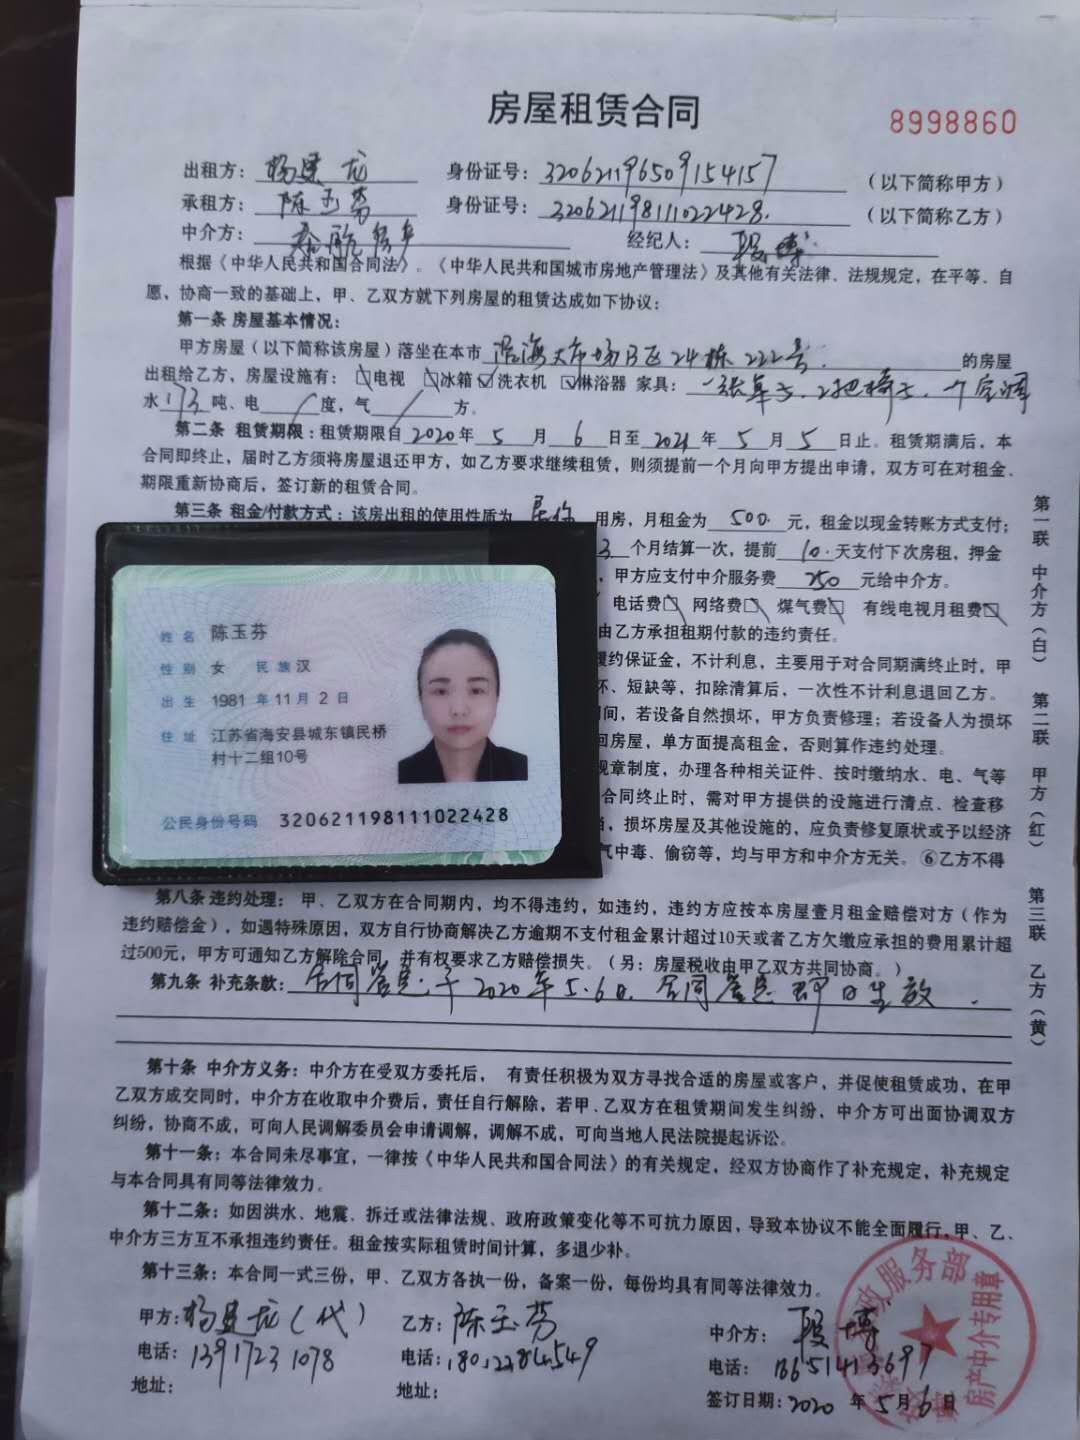 房屋租赁合同
8998860
出租方：杨建龙 身份证号：320621196509154157 （以下简称甲方）
承租方：陈玉芬 身份证号：320621198111022428. （以下简称乙方）
中介方： 经纪人：段博
根据《中华人民共和国合同法》、《中华人民共和国城市房地产管理法》及其他有关法律、法规规定，在平等、自
愿，协商一致的基础上，甲、乙双方就下列房屋的租赁达成如下协议：
第一条 房屋基本情况：
甲方房屋（以下简称该房屋）落坐在本市 海大市场B区24栋222号. 的房屋
出租给乙方，房屋设施有：□电视 □冰箱 ☑洗衣机 ☑淋浴器 家具：一张桌子、2把椅子、个空调
水173吨、电 度，气 方。
第二条 租赁期限：租赁期限自2020年5月6日至2021年5月5日止。租赁期满后，本
合同即终止，届时乙方须将房屋退还甲方，如乙方要求继续租赁，则须提前一个月向甲方提出申请，双方可在对租金、
期限重新协商后，签订新的租赁合同。
第三条 租金/付款方式：该房出租的使用性质为居住用房，月租金为500元，租金以现金转账方式支付；
3个月结算一次，提前10.天支付下次房租，押金
，甲方应支付中介服务费250元给中介方。
电话费□ 网络费□ 煤气费□ 有线电视月租费□
由乙方承担租期付款的违约责任。
履约保证金，不计利息，主要用于对合同期满终止时，甲
坏、短缺等，扣除清算后，一次性不计利息退回乙方。
间，若设备自然损坏，甲方负责修理；若设备人为损坏
回房屋，单方面提高租金，否则算作违约处理。
规章制度，办理各种相关证件、按时缴纳水、电、气等
合同终止时，需对甲方提供的设施进行清点、检查移
，损坏房屋及其他设施的，应负责修复原状或予以经济
气中毒、偷窃等，均与甲方和中介方无关。⑥乙方不得
姓名 陈玉芬
性别 女 民族 汉
出生 1981 年 11 月 2 日
住址 江苏省海安县城东镇民桥
村十二组10号
公民身份号码 320621198111022428
第八条 违约处理：甲、乙双方在合同期内，均不得违约，如违约，违约方应按本房屋壹月租金赔偿对方（作为
违约赔偿金），如遇特殊原因，双方自行协商解决乙方逾期不支付租金累计超过10天或者乙方欠缴应承担的费用累计超
过500元，甲方可通知乙方解除合同，并有权要求乙方赔偿损失。（另：房屋税收由甲乙双方共同协商。）
第九条 补充条款：合同签 于2020年5.6日.合同签 即日生效.
第十条 中介方义务：中介方在受双方委托后，有责任积极为双方寻找合适的房屋或客户，并促使租赁成功，在甲
乙双方成交同时，中介方在收取中介费后，责任自行解除，若甲、乙双方在租赁期间发生纠纷，中介方可出面协调双方
纠纷，协商不成，可向人民调解委员会申请调解，调解不成，可向当地人民法院提起诉讼。
第十一条：本合同未尽事宜，一律按《中华人民共和国合同法》的有关规定，经双方协商作了补充规定，补充规定
与本合同具有同等法律效力。
第十二条：如因洪水、地震、拆迁或法律法规、政府政策变化等不可抗力原因，导致本协议不能全面履行，甲、乙、
中介方三方互不承担违约责任。租金按实际租赁时间计算，多退少补。
第十三条：本合同一式三份，甲、乙双方各执一份，备案一份，每份均具有同等法律效力。
甲方：杨建龙（代） 乙方：陈玉芬 中介方：段博
电话：13917231078 电话： 电话：16651413697
地址： 地址： 签订日期：2020年5月6日
第一联 中介方（白） 第二联 甲方（红） 第三联 乙方（黄）
政服务部
房产中介专用章